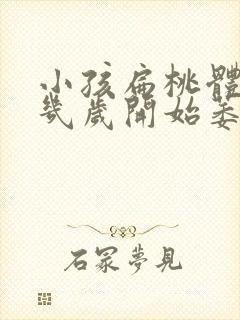 小孩扁桃體
幾歲開始萎
石冢夢見